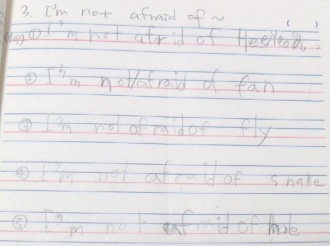 3. I'm not afraid of ~
( )
① I'm not afrid of
② I'm not afraid of fan
③ I'm not afraid of fly
④ I'm not afraid of snake
⑤ I'm not afraid of